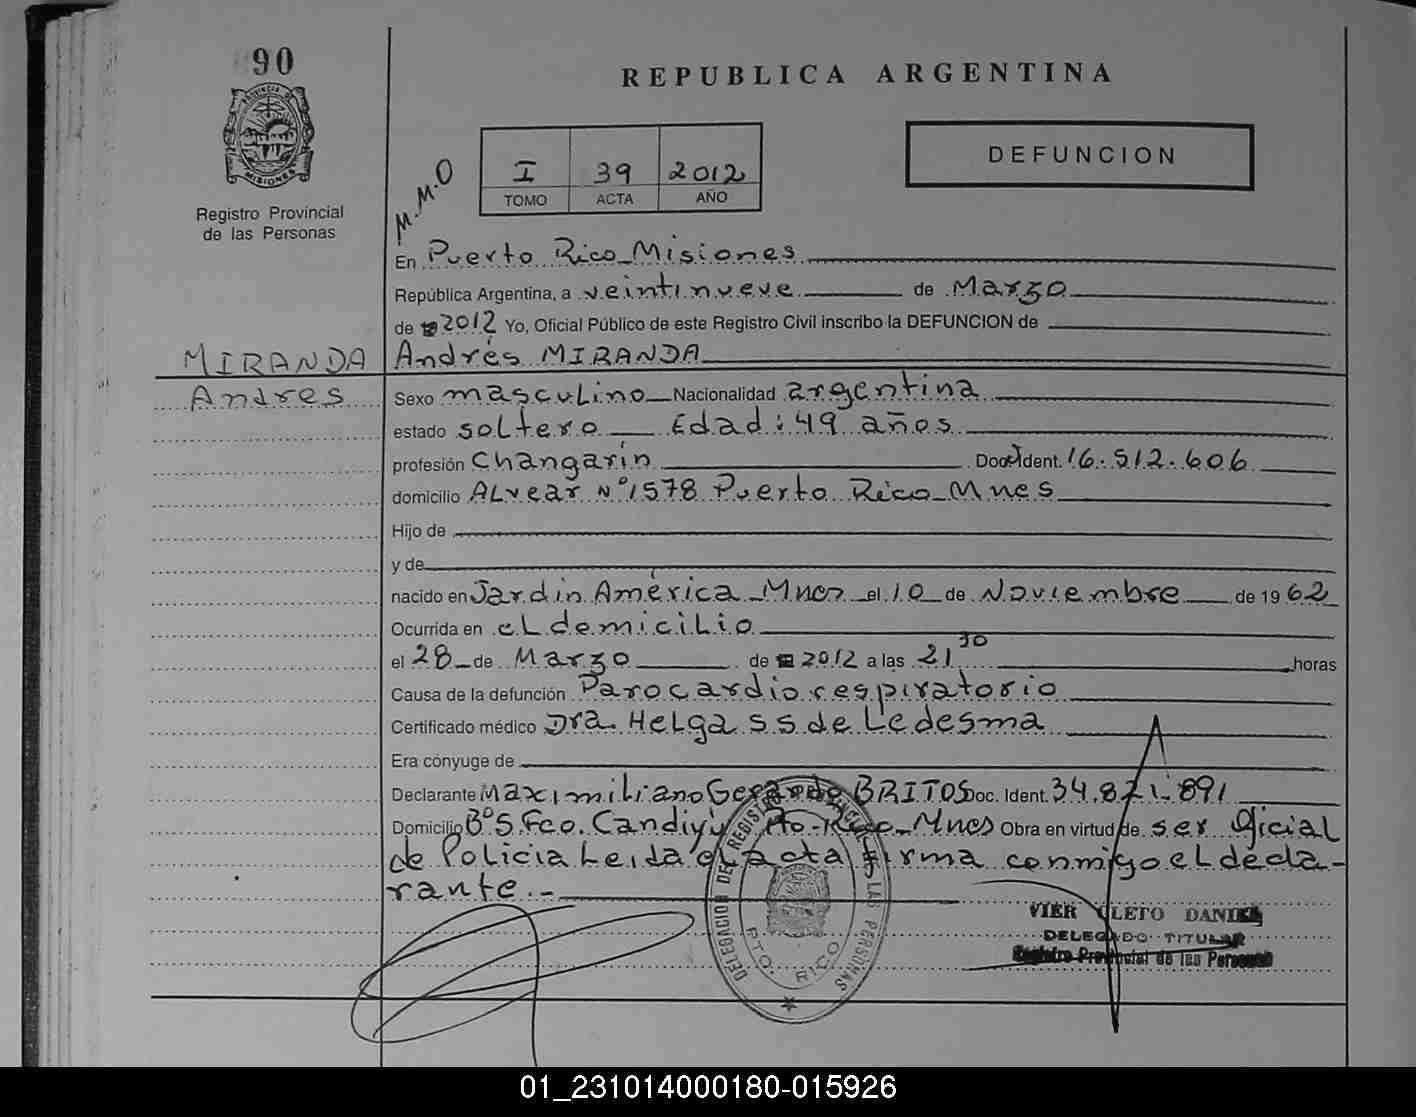 90
PROVINCIA DE
MISIONES
Registro Provincial
de las Personas
REPUBLICA ARGENTINA
DEFUNCION
M.M.O
I 39 2012
TOMO ACTA AÑO
En Puerto Rico Misiones
República Argentina, a veintinueve de Marzo
de 2012 Yo, Oficial Público de este Registro Civil inscribo la DEFUNCION de
MIRANDA Andrés MIRANDA
Andres Sexo masculino Nacionalidad argentina
estado soltero Edad: 49 años
profesión Changarin Doc. Ident. 16.512.606
domicilio Alvear Nº 1578 Puerto Rico Mnes
Hijo de
y de
nacido en Jardin América Mnes el 10 de Noviembre de 1962
Ocurrida en el domicilio
el 28 de Marzo de 2012 a las 21 30 horas
Causa de la defunción Parocardiorespiratorio
Certificado médico Dra. Helga S S de Ledesma
Era cónyuge de
Declarante Maximiliano Gerardo BRITOS Doc. Ident. 34.821.891
Domicilio Bº S. Fco. Candiyú Pto. Rico Mnes Obra en virtud de ser oficial
de Policia Leida el acta firma conmigo el decla-
rante.-
DELEGACION DEL REGISTRO PROVINCIAL DE LAS PERSONAS
PTO. RICO
VIER CLETO DANIEL
DELEGADO TITULAR
Registro Provincial de las Personas
01_231014000180-015926